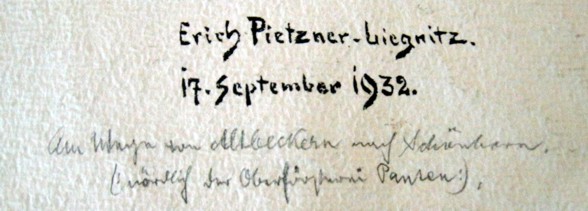 Erich Pietzner-Liegnitz.
17. September 1932.
Am Wege von Altbeckern nach Schönborn.
(: nördlich der Oberförsterei Panten :).